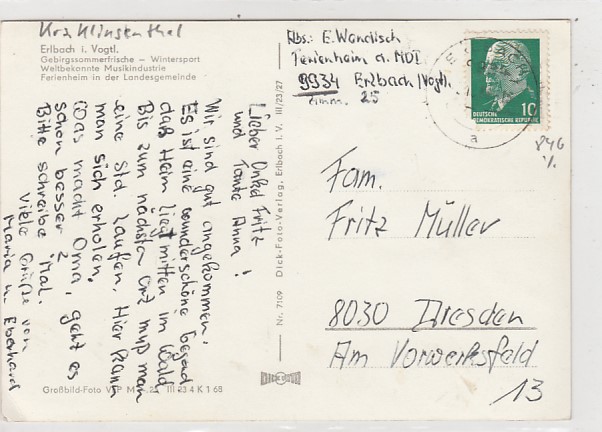 Krs Klingenthal
Erlbach i. Vogtl.
Gebirgssommerfrische – Wintersport
Weltbekannte Musikindustrie
Ferienheim in der Landesgemeinde
Abs.: E. Wondisch
Ferienheim d. MDI
9934 Erlbach/Vogtl.
Zimm. 25
DEUTSCHE
DEMOKRATISCHE REPUBLIK
10
a
846
Lieber Onkel Fritz
und Tante Anna!
Wir sind gut angekommen.
Es ist eine wunderschöne Gegend
das Heim liegt mitten im Wald
Bis zum nächsten Ort muß man
eine Std. laufen. Hier kann
man sich erholen.
Was macht Oma, geht es
schon besser?
Bitte schreibe mal.
Viele Grüße von
Maria u. Eberhard
Nr. 7109 Dick-Foto-Verlag, Erlbach i. V. III/23/27
Fam.
Fritz Müller
8030 Dresden
Am Vorwerksfeld
13
Großbild-Foto III 23 4 K 1 68